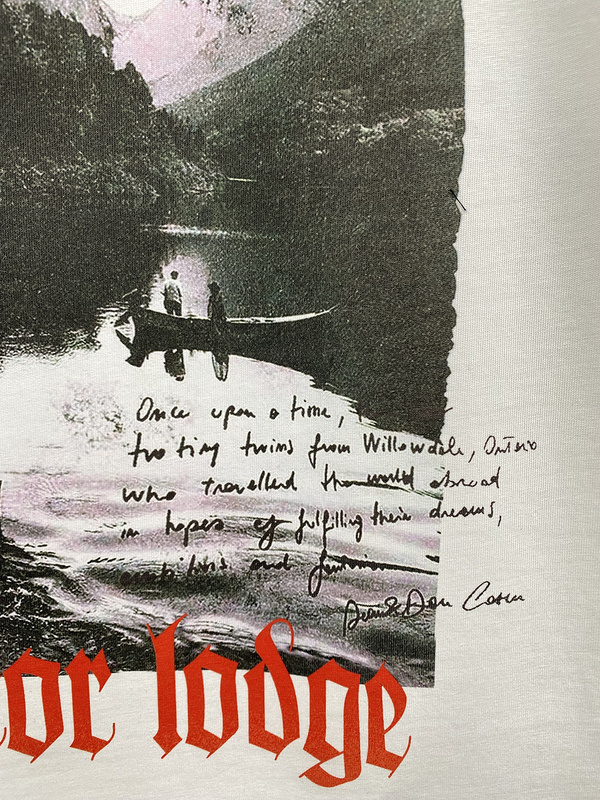 Once upon a time,
two tiny twins from Willowdale, Ontario
who travelled the world abroad
in hopes of fulfilling their dreams,
and
Dean & Dan Caten
or lodge